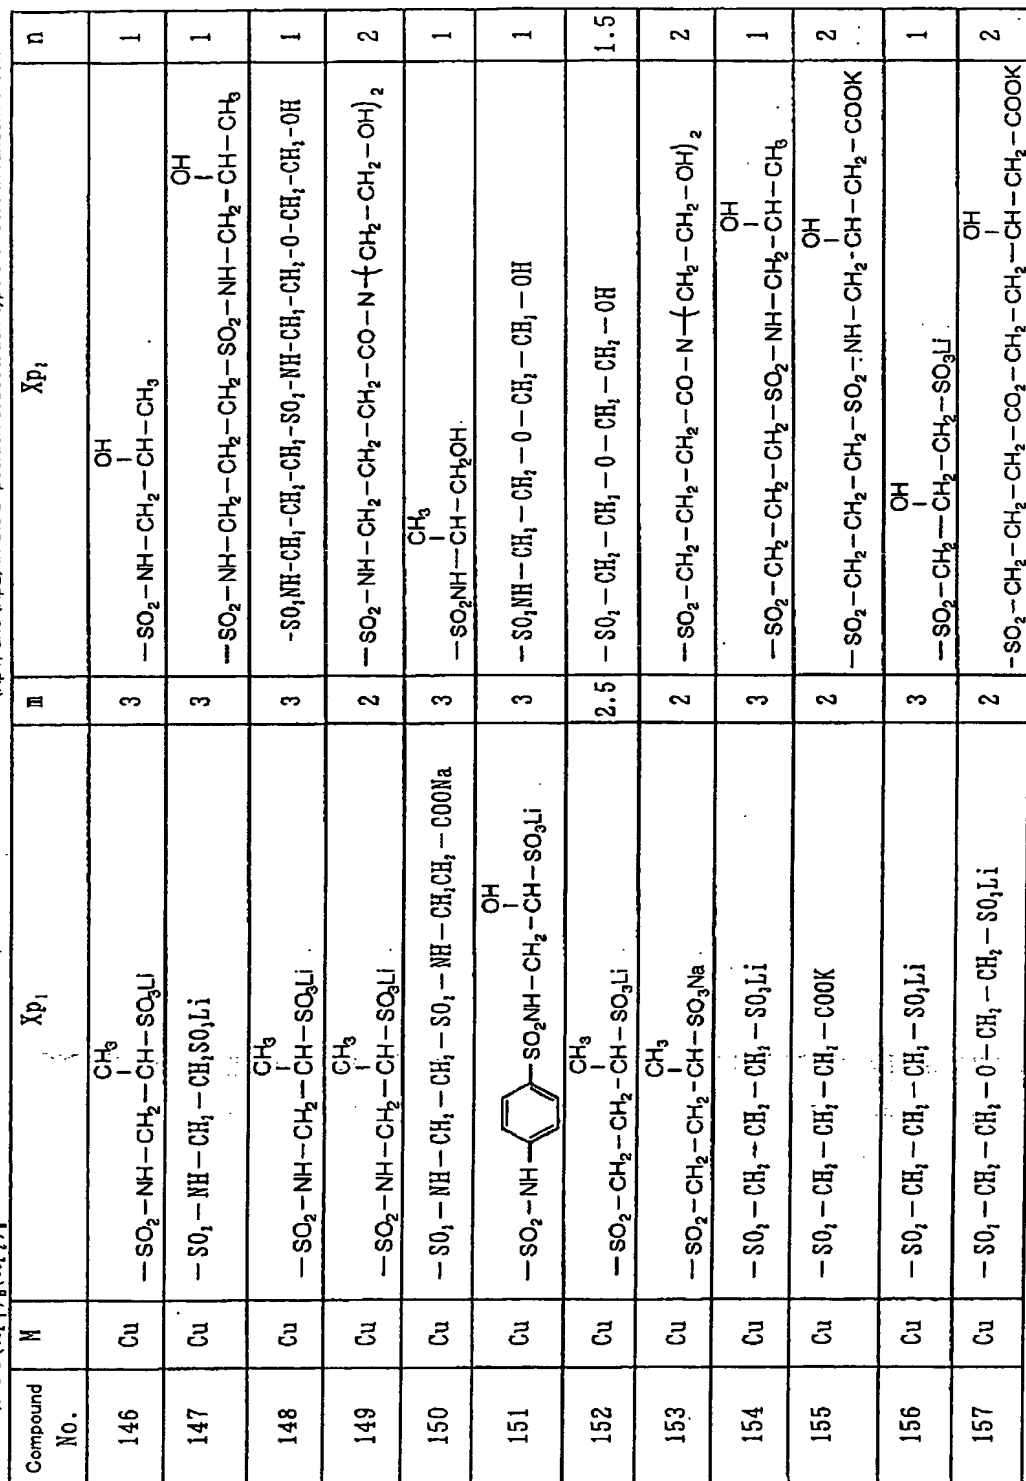 Compound No. | M | Xp₁ | m | Xp₂ | n
146 | Cu | —SO₂—NH—CH₂—CH(CH₃)—SO₃Li | 3 | —SO₂—NH—CH₂—CH(OH)—CH₃ | 1
147 | Cu | —SO₂—NH—CH₂—CH₂SO₃Li | 3 | —SO₂—NH—CH₂—CH₂—CH₂—SO₂—NH—CH₂—CH(OH)—CH₃ | 1
148 | Cu | —SO₂—NH—CH₂—CH(CH₃)—SO₃Li | 3 | -SO₂NH-CH₂-CH₂-CH₂-SO₂-NH-CH₂-CH₂-O-CH₂-CH₂-OH | 1
149 | Cu | —SO₂—NH—CH₂—CH(CH₃)—SO₃Li | 2 | —SO₂—NH—CH₂—CH₂—CH₂—CO—N(CH₂—CH₂—OH)₂ | 2
150 | Cu | —SO₂—NH—CH₂—CH₂—SO₂—NH—CH₂CH₂—COONa | 3 | —SO₂NH—CH(CH₃)—CH₂OH | 1
151 | Cu | —SO₂—NH—⌬—SO₂NH—CH₂—CH(OH)—SO₃Li | 3 | —SO₂NH—CH₂—CH₂—O—CH₂—CH₂—OH | 1
152 | Cu | —SO₂—CH₂—CH₂—CH(CH₃)—SO₃Li | 2.5 | —SO₂—CH₂—CH₂—O—CH₂—CH₂—OH | 1.5
153 | Cu | —SO₂—CH₂—CH₂—CH(CH₃)—SO₃Na | 2 | —SO₂—CH₂—CH₂—CH₂—CO—N(CH₂—CH₂—OH)₂ | 2
154 | Cu | —SO₂—CH₂—CH₂—CH₂—SO₃Li | 3 | —SO₂—CH₂—CH₂—CH₂—SO₂—NH—CH₂—CH(OH)—CH₃ | 1
155 | Cu | —SO₂—CH₂—CH₂—CH₂—COOK | 2 | —SO₂—CH₂—CH₂—CH₂—SO₂—NH—CH₂—CH(OH)—CH₂—COOK | 2
156 | Cu | —SO₂—CH₂—CH₂—CH₂—SO₃Li | 3 | —SO₂—CH₂—CH₂(OH)—CH₂—SO₃Li | 1
157 | Cu | —SO₂—CH₂—CH₂—O—CH₂—CH₂—SO₃Li | 2 | -SO₂—CH₂—CH₂—CH₂—CO₂—CH₂—CH₂—CH(OH)—CH₂—COOK | 2